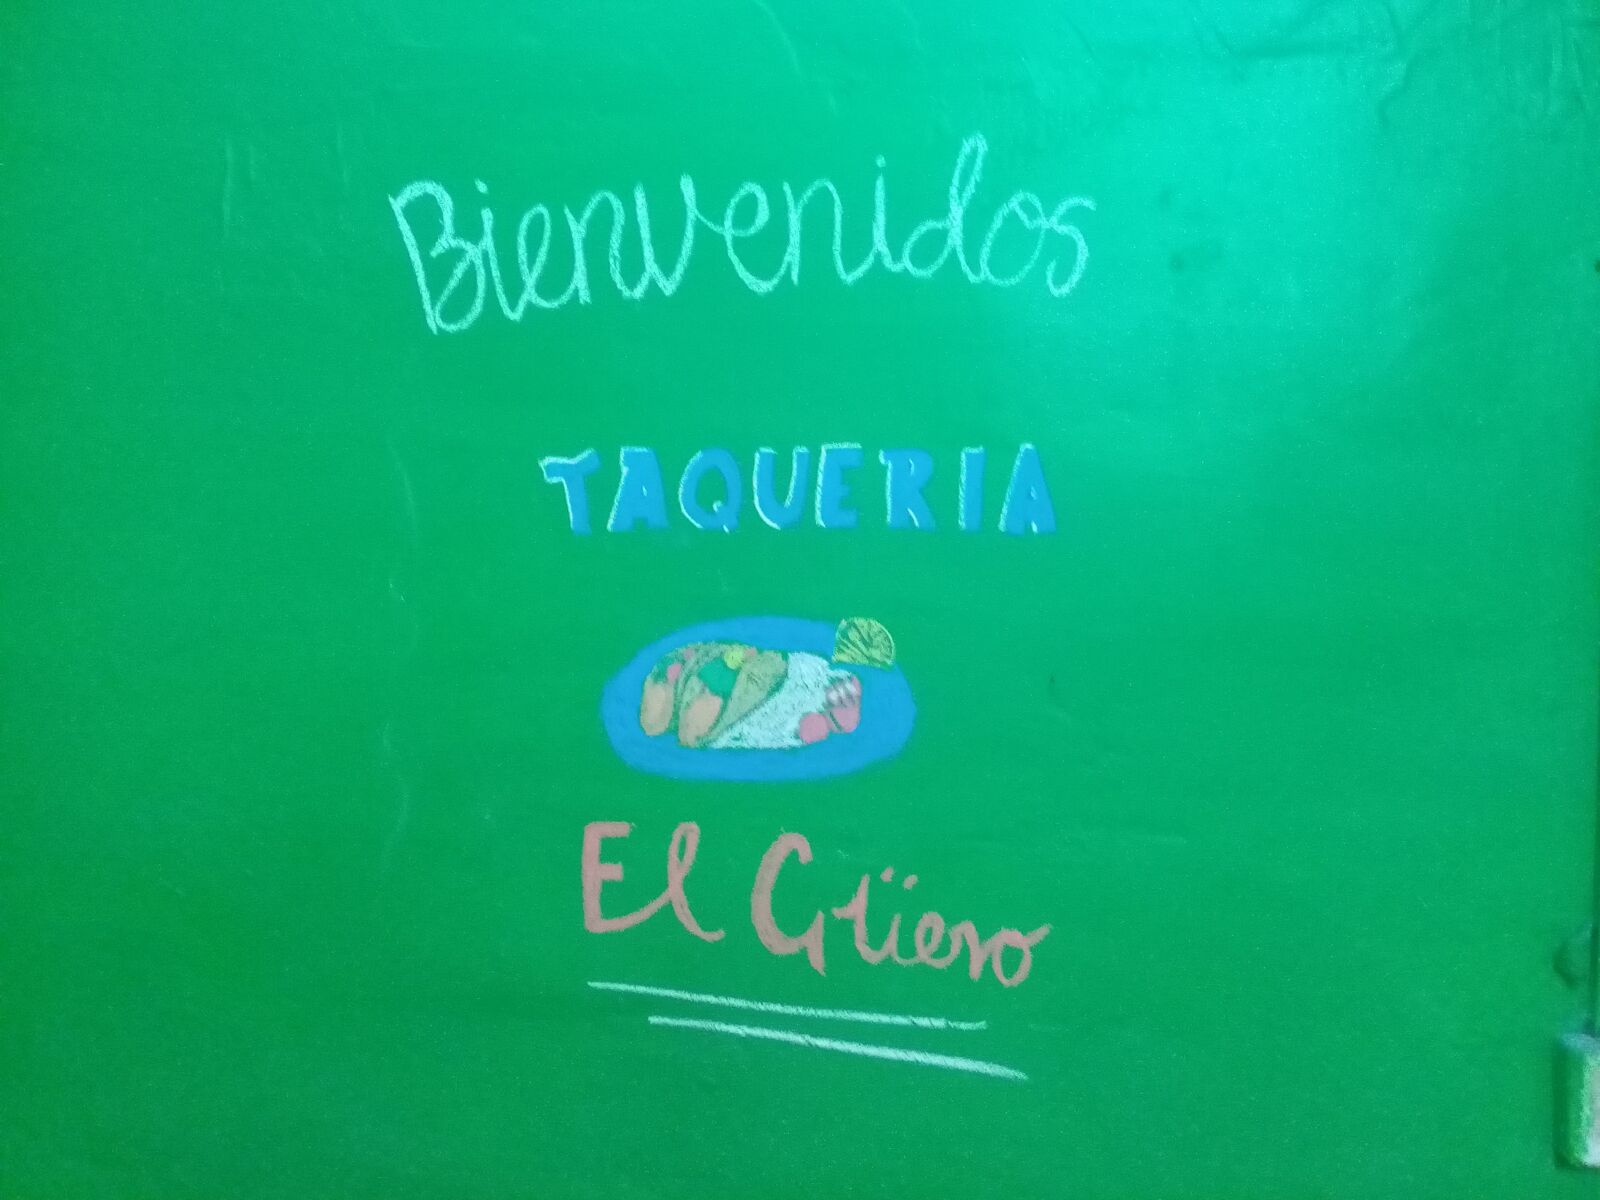 Bienvenidos
TAQUERIA
El Güero